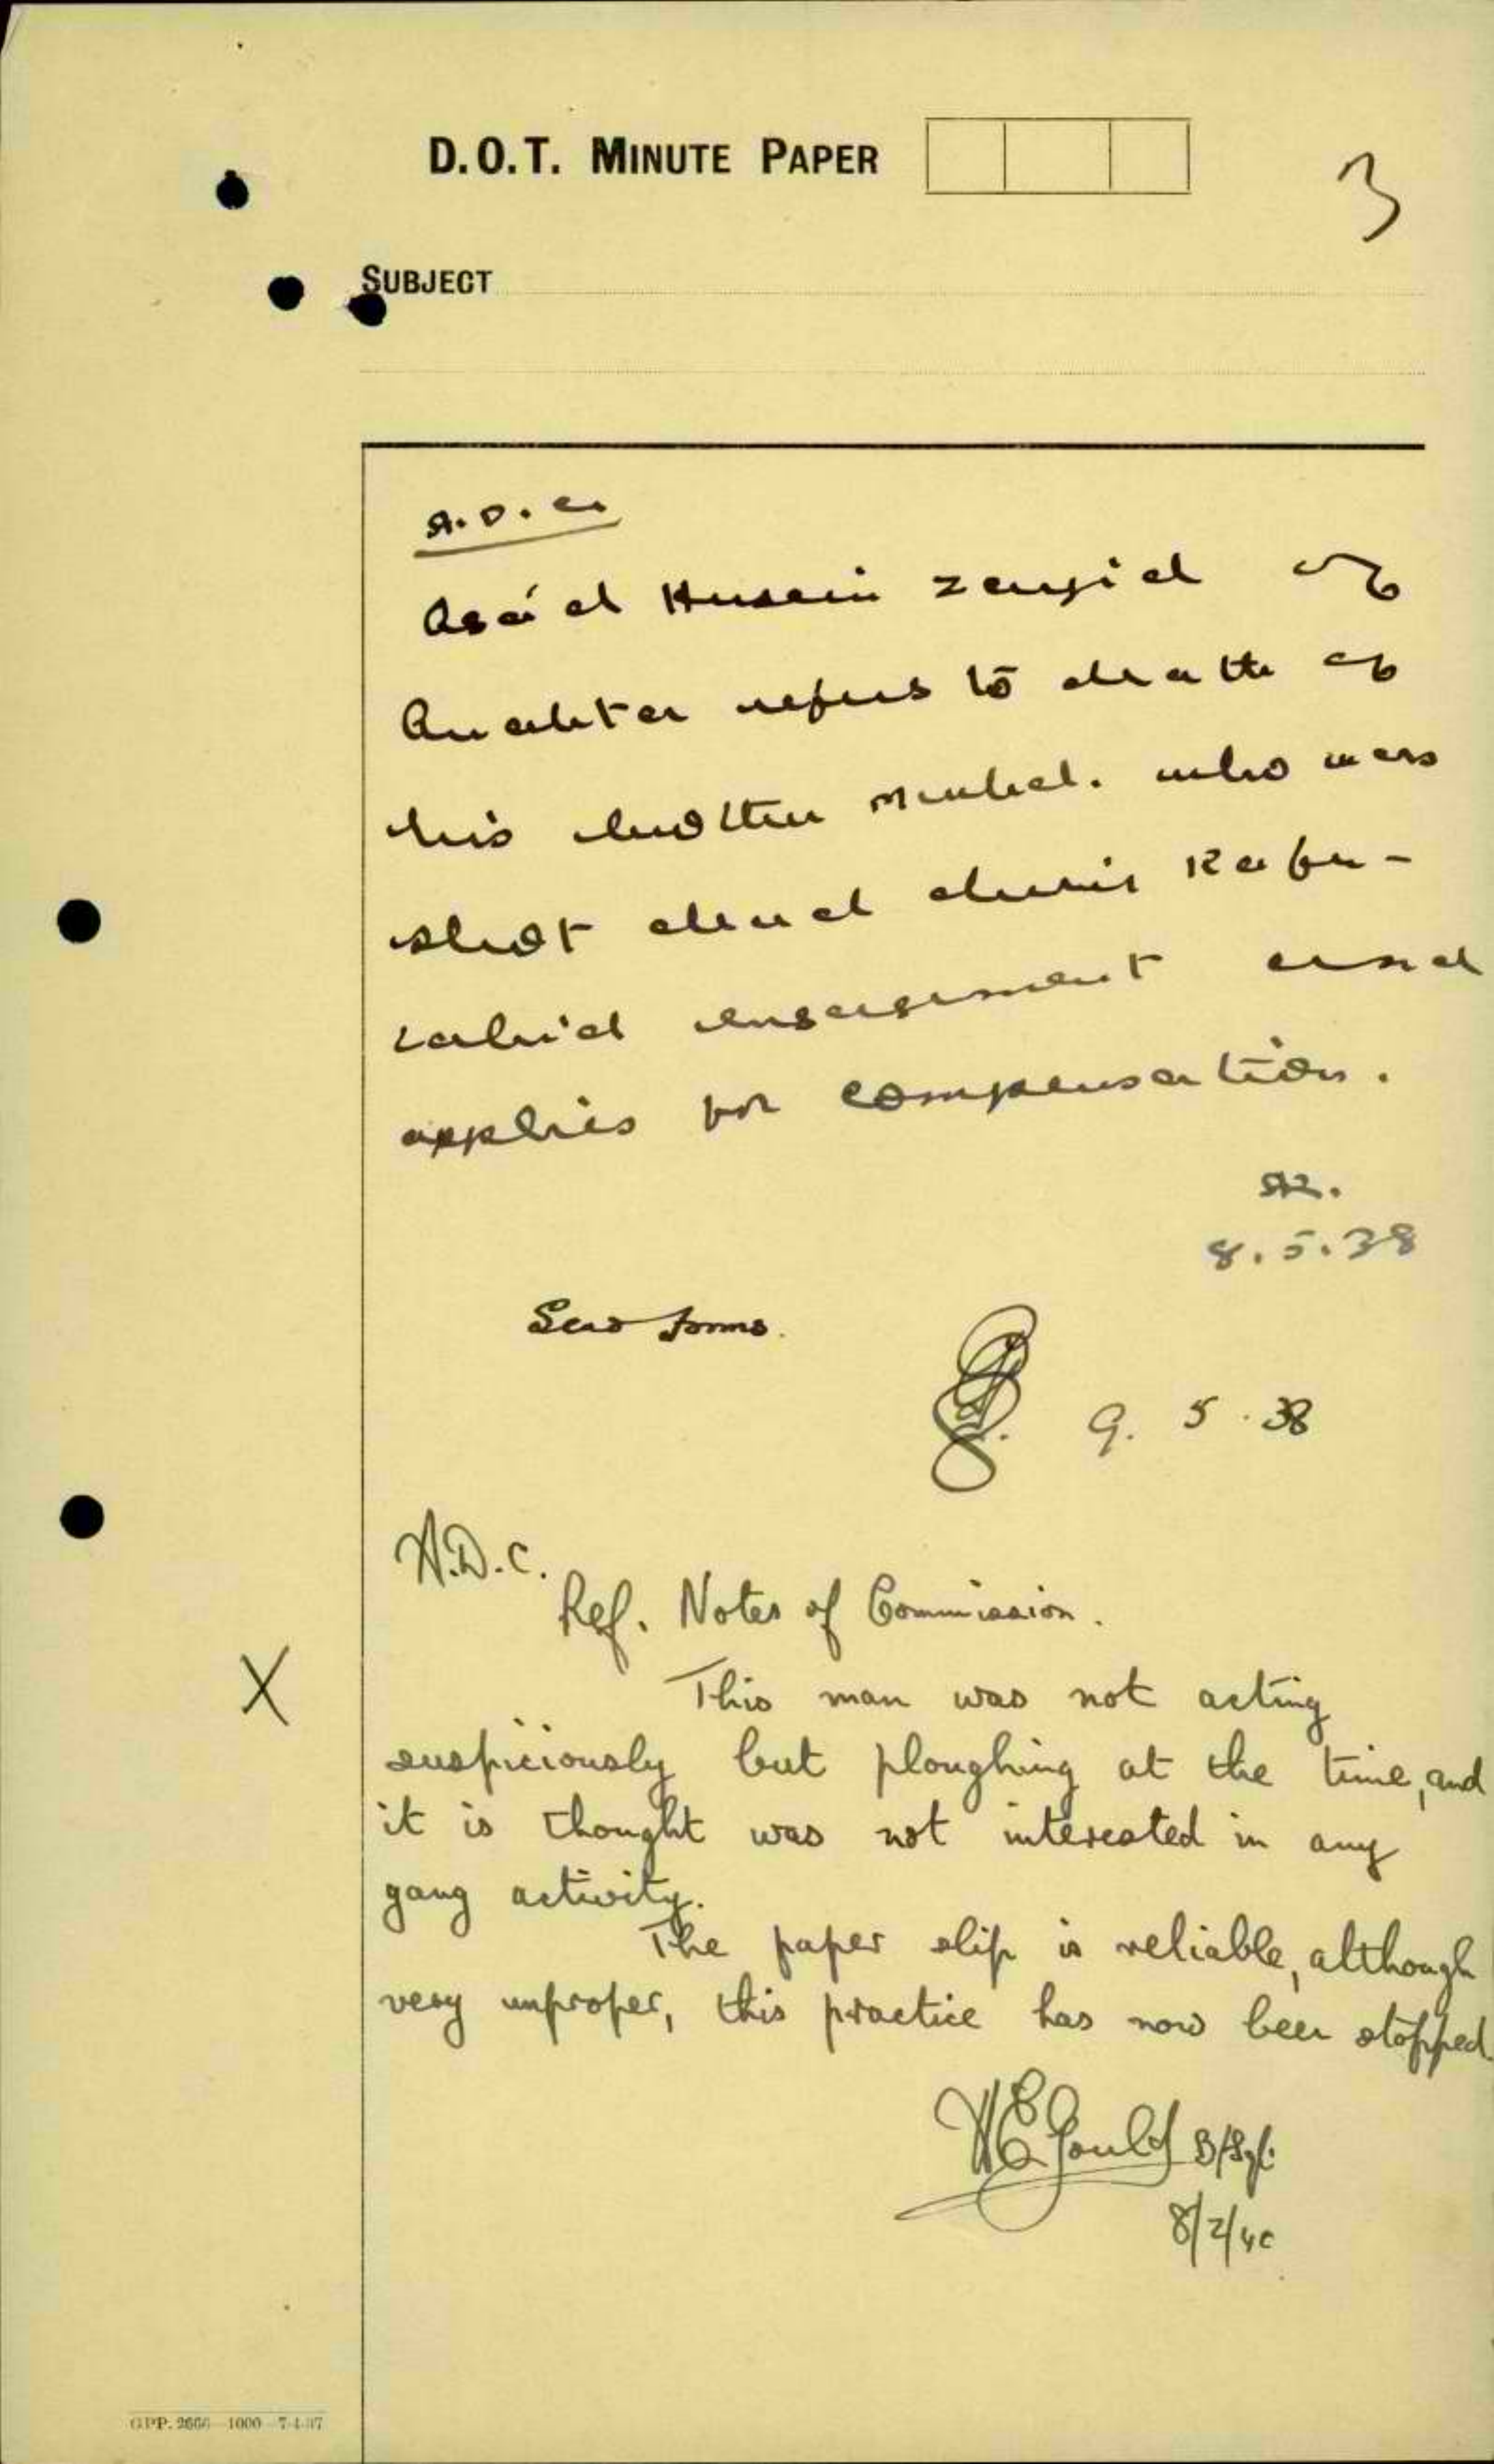 D.O.T. MINUTE PAPER
3
SUBJECT
A.D.C.
Asa'd Husein Zeugied of
Anabta refers to death of
his brother who was
shot dead during Kafr-
Labid engagement and
applies for compensation.
8.5.38
Send forms.
9. 5. 38
A.D.C.
Ref. Notes of Commission.
X
This man was not acting
suspiciously but ploughing at the time, and
it is thought was not interested in any
gang activity.
The paper slip is reliable, although
very unproper, this practice has now been stopped.
WE Gould B/Sgt.
8/2/40
GPP. 2666—1000—7-4-37